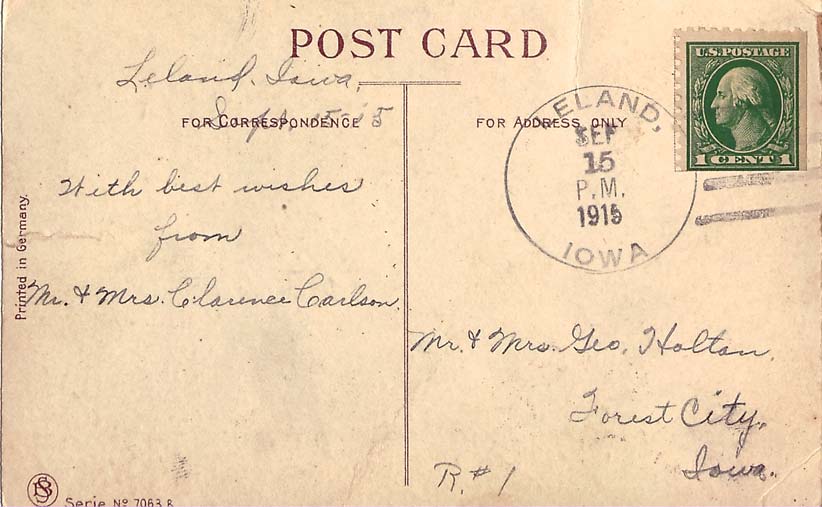 POST CARD
Leland, Iowa,
Sept. 15-15
FOR CORRESPONDENCE
With best wishes
from
Mr. & Mrs. Clarence Carlson.
Printed in Germany.
Serie Nº 7063 B
FOR ADDRESS ONLY
U.S. POSTAGE
1 CENT 1
LELAND,
SEP
15
P.M.
1915
IOWA
Mr. & Mrs. Geo. Holtan,
Forest City,
Iowa.
R. #1